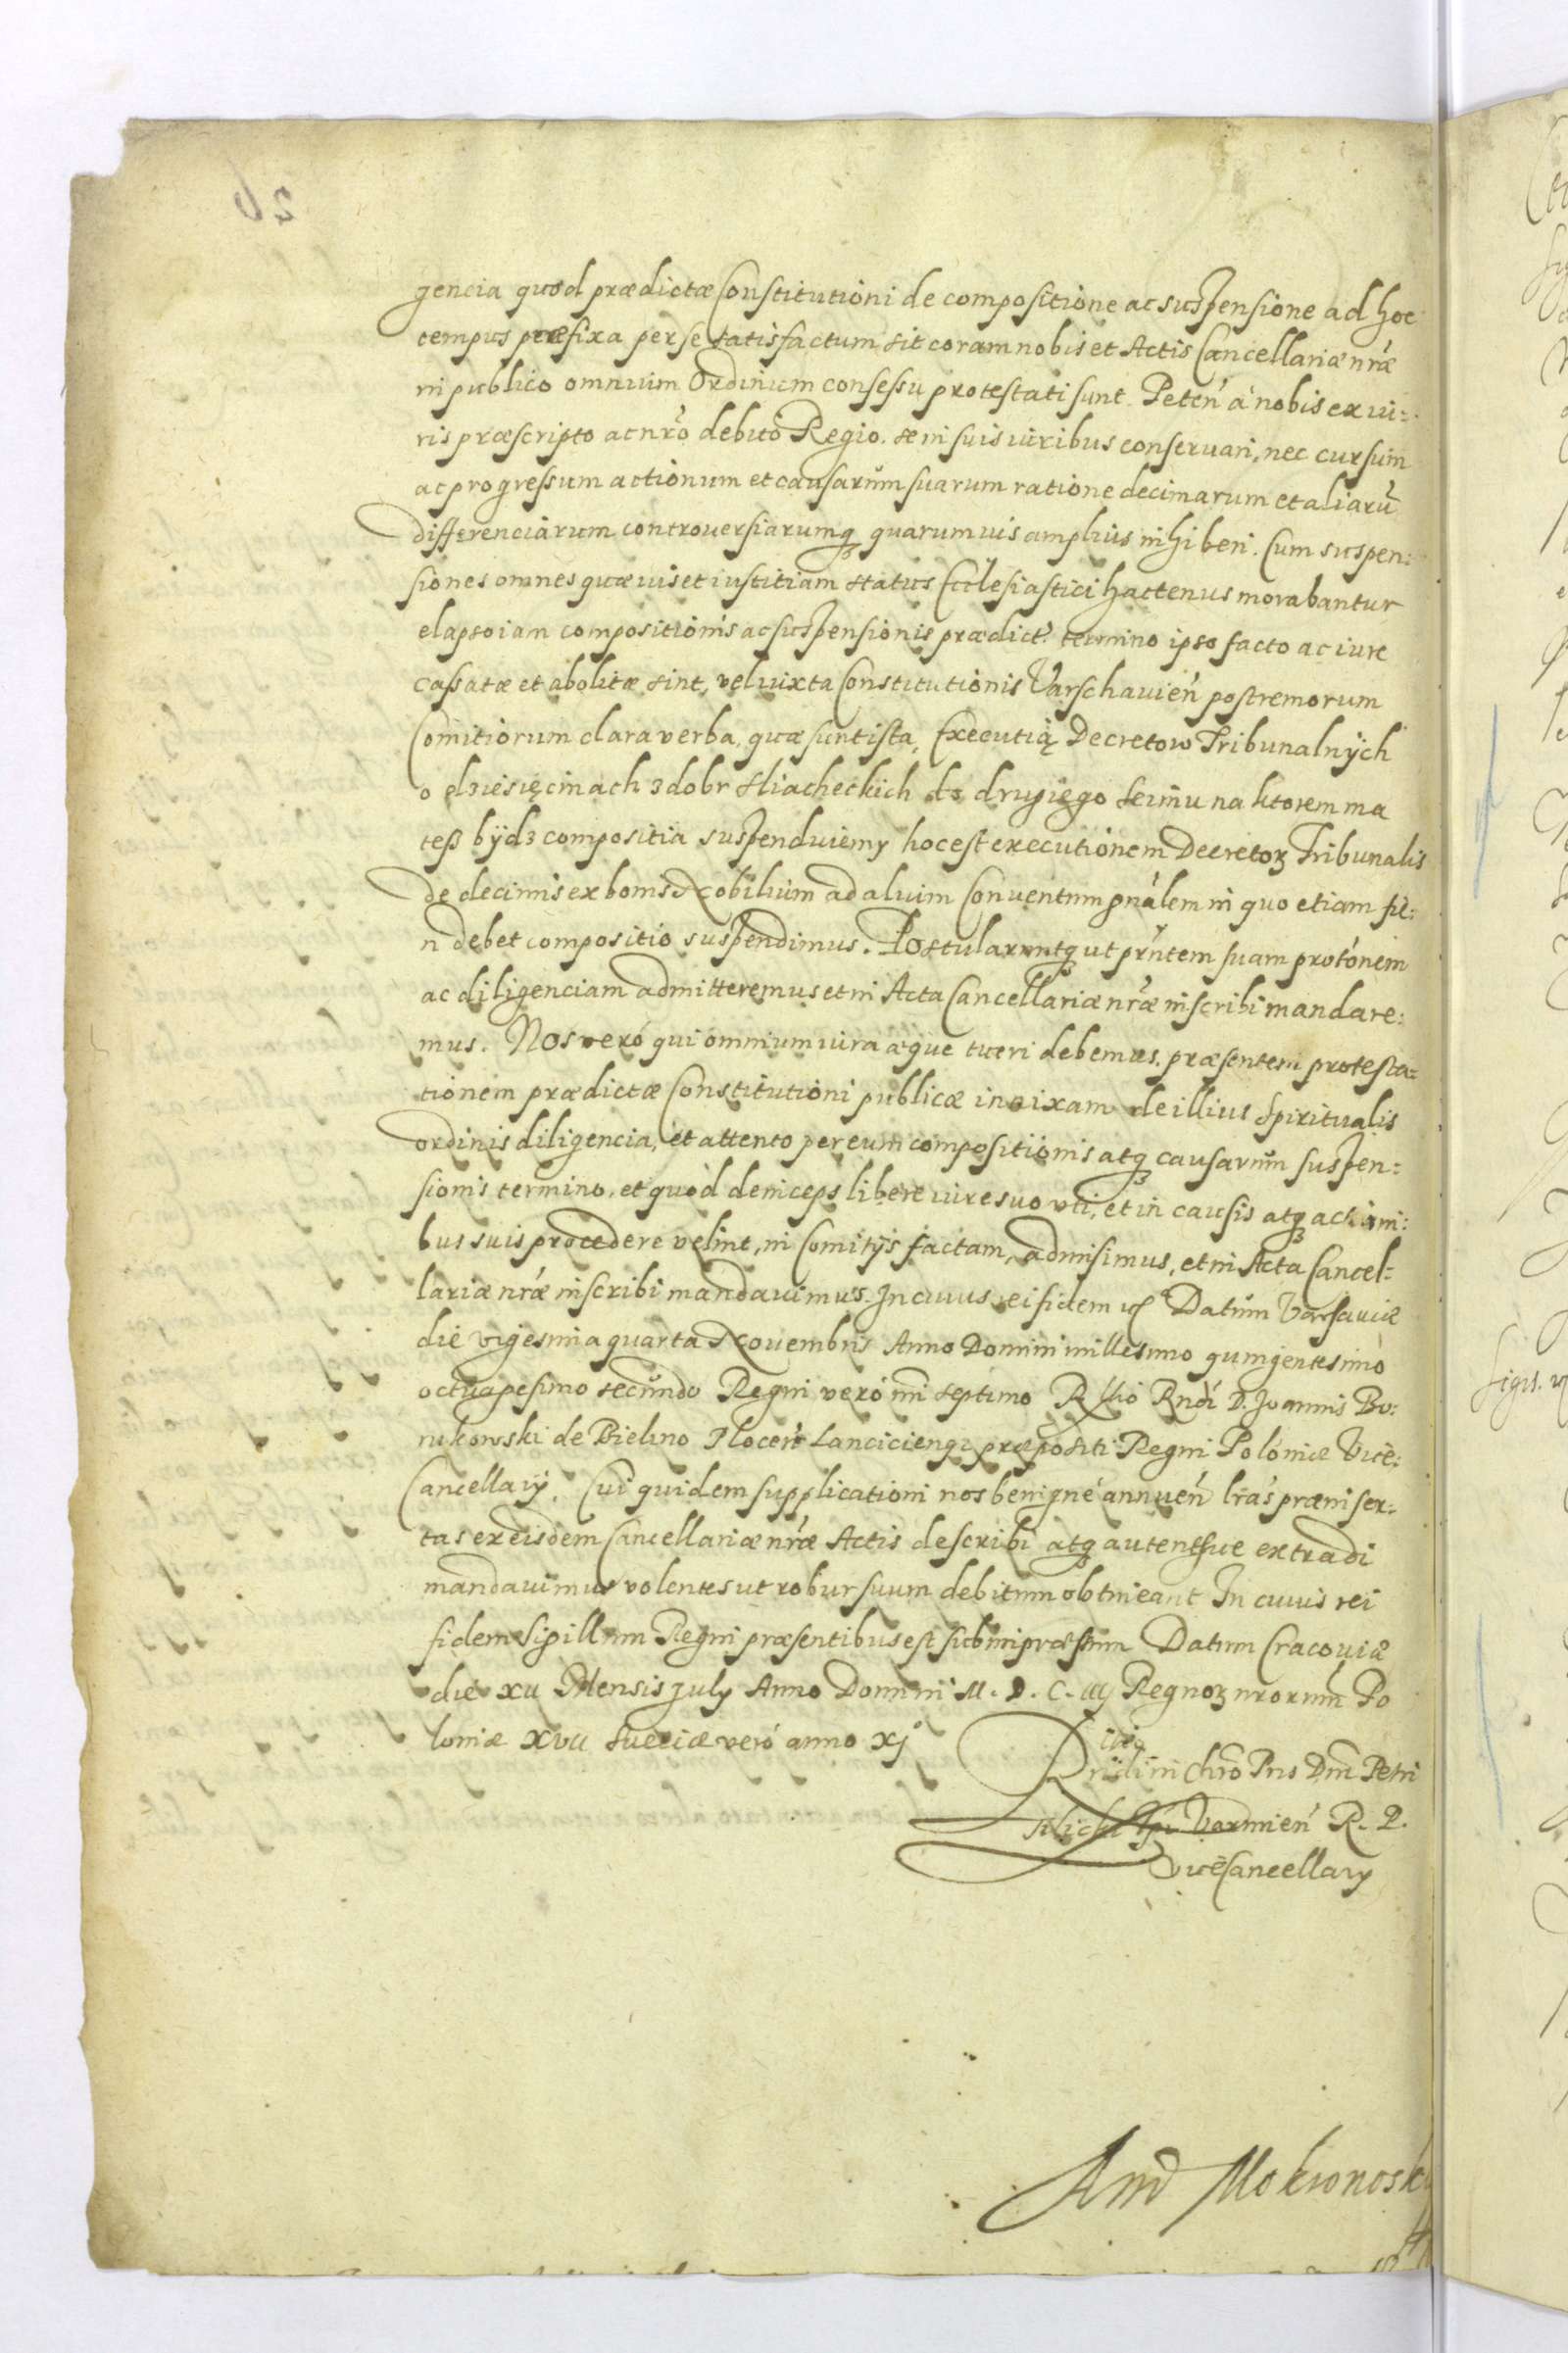 26
gencia quod prædictæ Constitutioni de compositione ac suspensione ad hoc
tempus præfixa per se satisfactum sit coram nobis et Actis Cancellariæ nræ
in publico omnium Ordinum consessu protestati sunt. Peteń à nobis ex iu=
ris præscripto ac nrō debito Regio. se in suis iuribus conseruari, nec cursum
ac progressum actionum et causarum suarum ratione decimarum et aliarū
differenciarum controuersiarumq̃ quarumuis amplius inhiberi. Cum suspen=
siones omnes quæ uis et iustitiam status Ecclesiastici hactenus morabantur
elapso iam compositionis ac suspensionis prædict: termino ipso facto ac iure
cassatæ et abolitæ sint, vel iuxta Constitutionis Varschauień postremorum
Comitiorum clara verba, quæ sunt ista, Executią Decretow Tribunalnÿch
o dziesięcinach z dobr sliacheckich do drugiego seimu na ktorem ma
teß bÿdz compositia suspenduiemy hoc est executionem Decretoꝝ Tribunalis
de decimis ex bonis Nobilium ad alium Conuentum gnálem in quo etiam fie=
ri debet compositio suspendimus. Postularuntq̃ ut prńtem suam protónem
ac diligenciam admitteremus et in Acta Cancellariæ nræ inscribi mandare=
mus. Nos veró qui omnium iura æque tueri debemus. præsentem protesta=
tionem prædictæ Constitutioni publicæ innixam de illius Spiritualis
ordinis diligencia, et attento per eum compositionis atq̃ causarum suspen=
sionis termino. et quòd deinceps libere iure suo vti, et in causis atq̃ actioni=
bus suis procedere velint, in Comitÿs factam, admisimus, et in Acta Cancel=
lariæ nræ inscribi mandauimus. In cuius rei fidem Datum Varsauiæ
die vigesima quarta Nouembris Anno Domini millesimo quingentesimo
octuagesimo secundo Regni veró nri septimo Rllio Rndi D. Joannis Bo=
rukowski de Bielino Ploceń Lanciciensq̃ præpositi Regni Poloniæ Vice=
Cancellarÿ. Cui quidem supplicationi nos benigné annueń lras præinser=
tas ex eisdem Cancellariæ nræ Actis describi atq̃ autentice extradi
mandauimus volentes ut robur suum debitum obtineant In cuius rei
fidem sigillum Regni præsentibus est subimpræssum Datum Cracouiæ
die xii Mensis July Anno Domini M. D. C. iiij Regnoꝝ nrorum Po
loniæ xvii sueciæ veró anno xj°
Rndi in Chro Pris Dni Petri
Tilicki Epi Varmień R. P.
ViceCancellarÿ
And Mokronosky